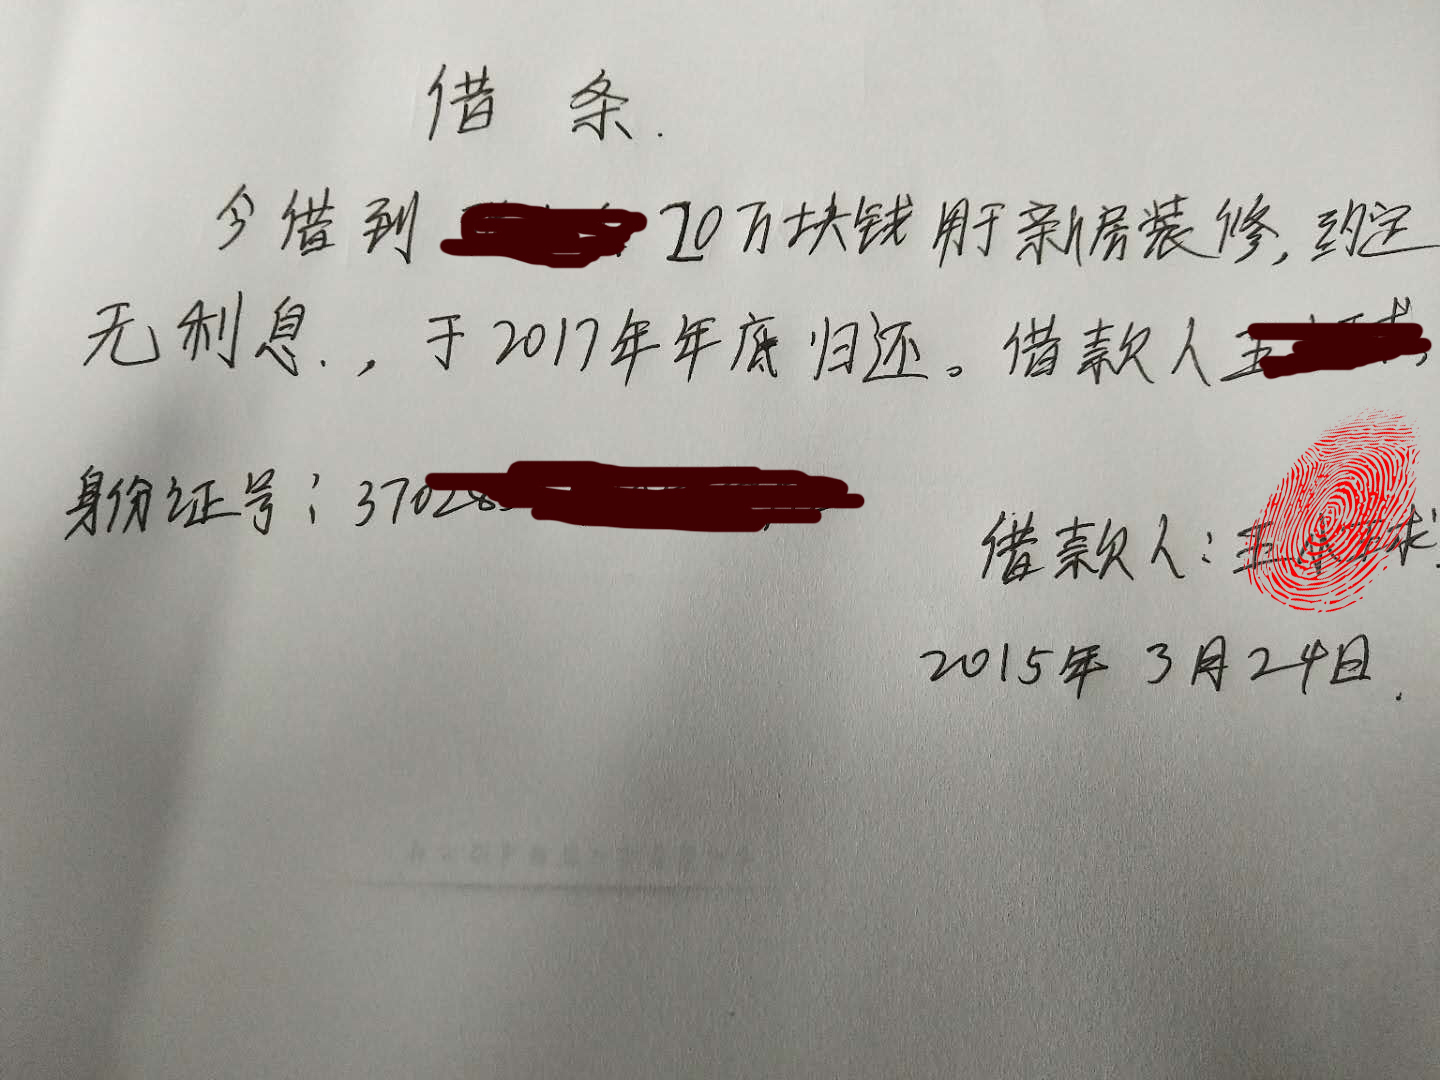 借 条.
今借到 20万块钱用于新房装修, 约定
无利息., 于2017年年底归还。借款人王
身份证号: 37028
借款人: 王
2015年 3月24日.